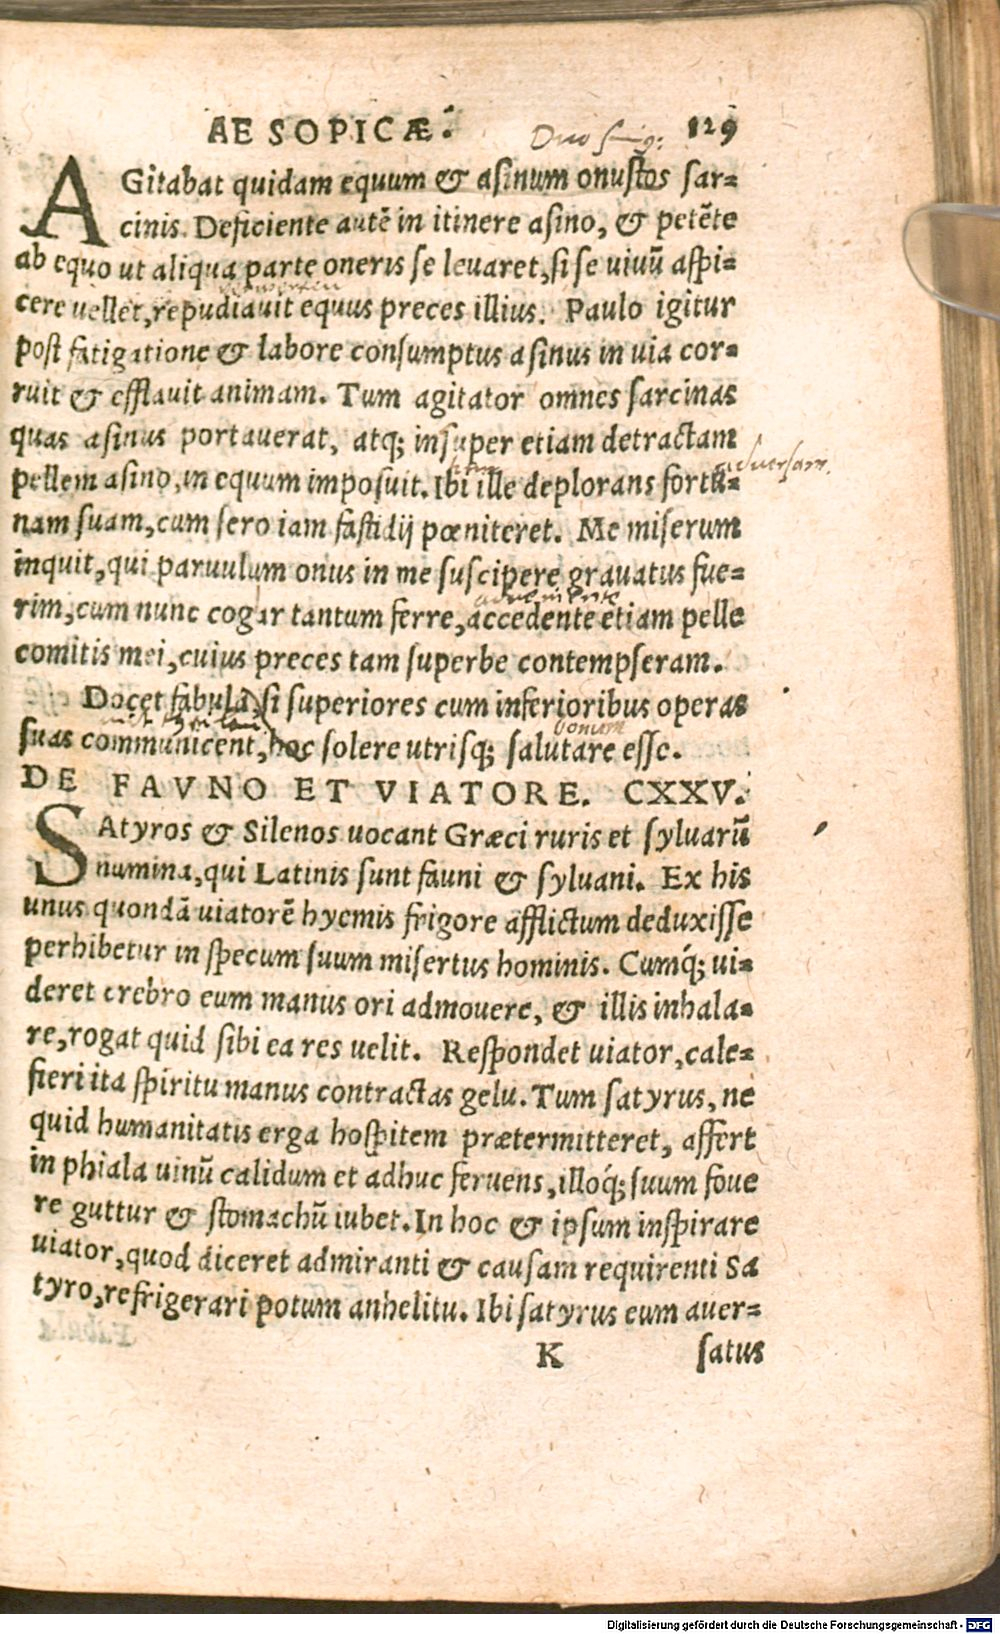 AESOPICÆ. 129
Duo
AGitabat quidam equum & asinum onustos sar=
cinis. Deficiente autẽ in itinere asino, & petẽte
ab equo ut aliqua parte oneris se leuaret, si se uiuũ aspi=
cere uellet, repudiauit equus preces illius. Paulo igitur
post fatigatione & labore consumptus asinus in uia cor=
ruit & efflauit animam. Tum agitator omnes sarcinas
quas asinus portauerat, atq; insuper etiam detractam
aduersam.
pellem asino, in equum imposuit. Ibi ille deplorans fortu=
nam suam, cum sero iam fastidij pœniteret. Me miserum
inquit, qui paruulum onus in me suscipere grauatus fue=
rim, cum nunc cogar tantum ferre, accedente etiam pelle
comitis mei, cuius preces tam superbe contempseram.
Docet fabula, si superiores cum inferioribus operas
bonum
suas communicent, hoc solere utrisq; salutare esse.
DE FAVNO ET VIATORE. CXXV.
SAtyros & Silenos uocant Græci ruris et syluarũ
numina, qui Latinis sunt fauni & syluani. Ex his
unus quondã uiatorẽ hyemis frigore afflictum deduxisse
perhibetur in specum suum misertus hominis. Cumq́; ui=
deret crebro eum manus ori admouere, & illis inhala=
re, rogat quid sibi ea res uelit. Respondet uiator, cale=
fieri ita spiritu manus contractas gelu. Tum satyrus, ne
quid humanitatis erga hospitem prætermitteret, affert
in phiala uinũ calidum et adhuc feruens, illoq́; suum foue
re guttur & stomachũ iubet. In hoc & ipsum inspirare
uiator, quod diceret admiranti & causam requirenti Sa
tyro, refrigerari potum anhelitu. Ibi satyrus eum auer=
K satus
Digitalisierung gefördert durch die Deutsche Forschungsgemeinschaft - DFG